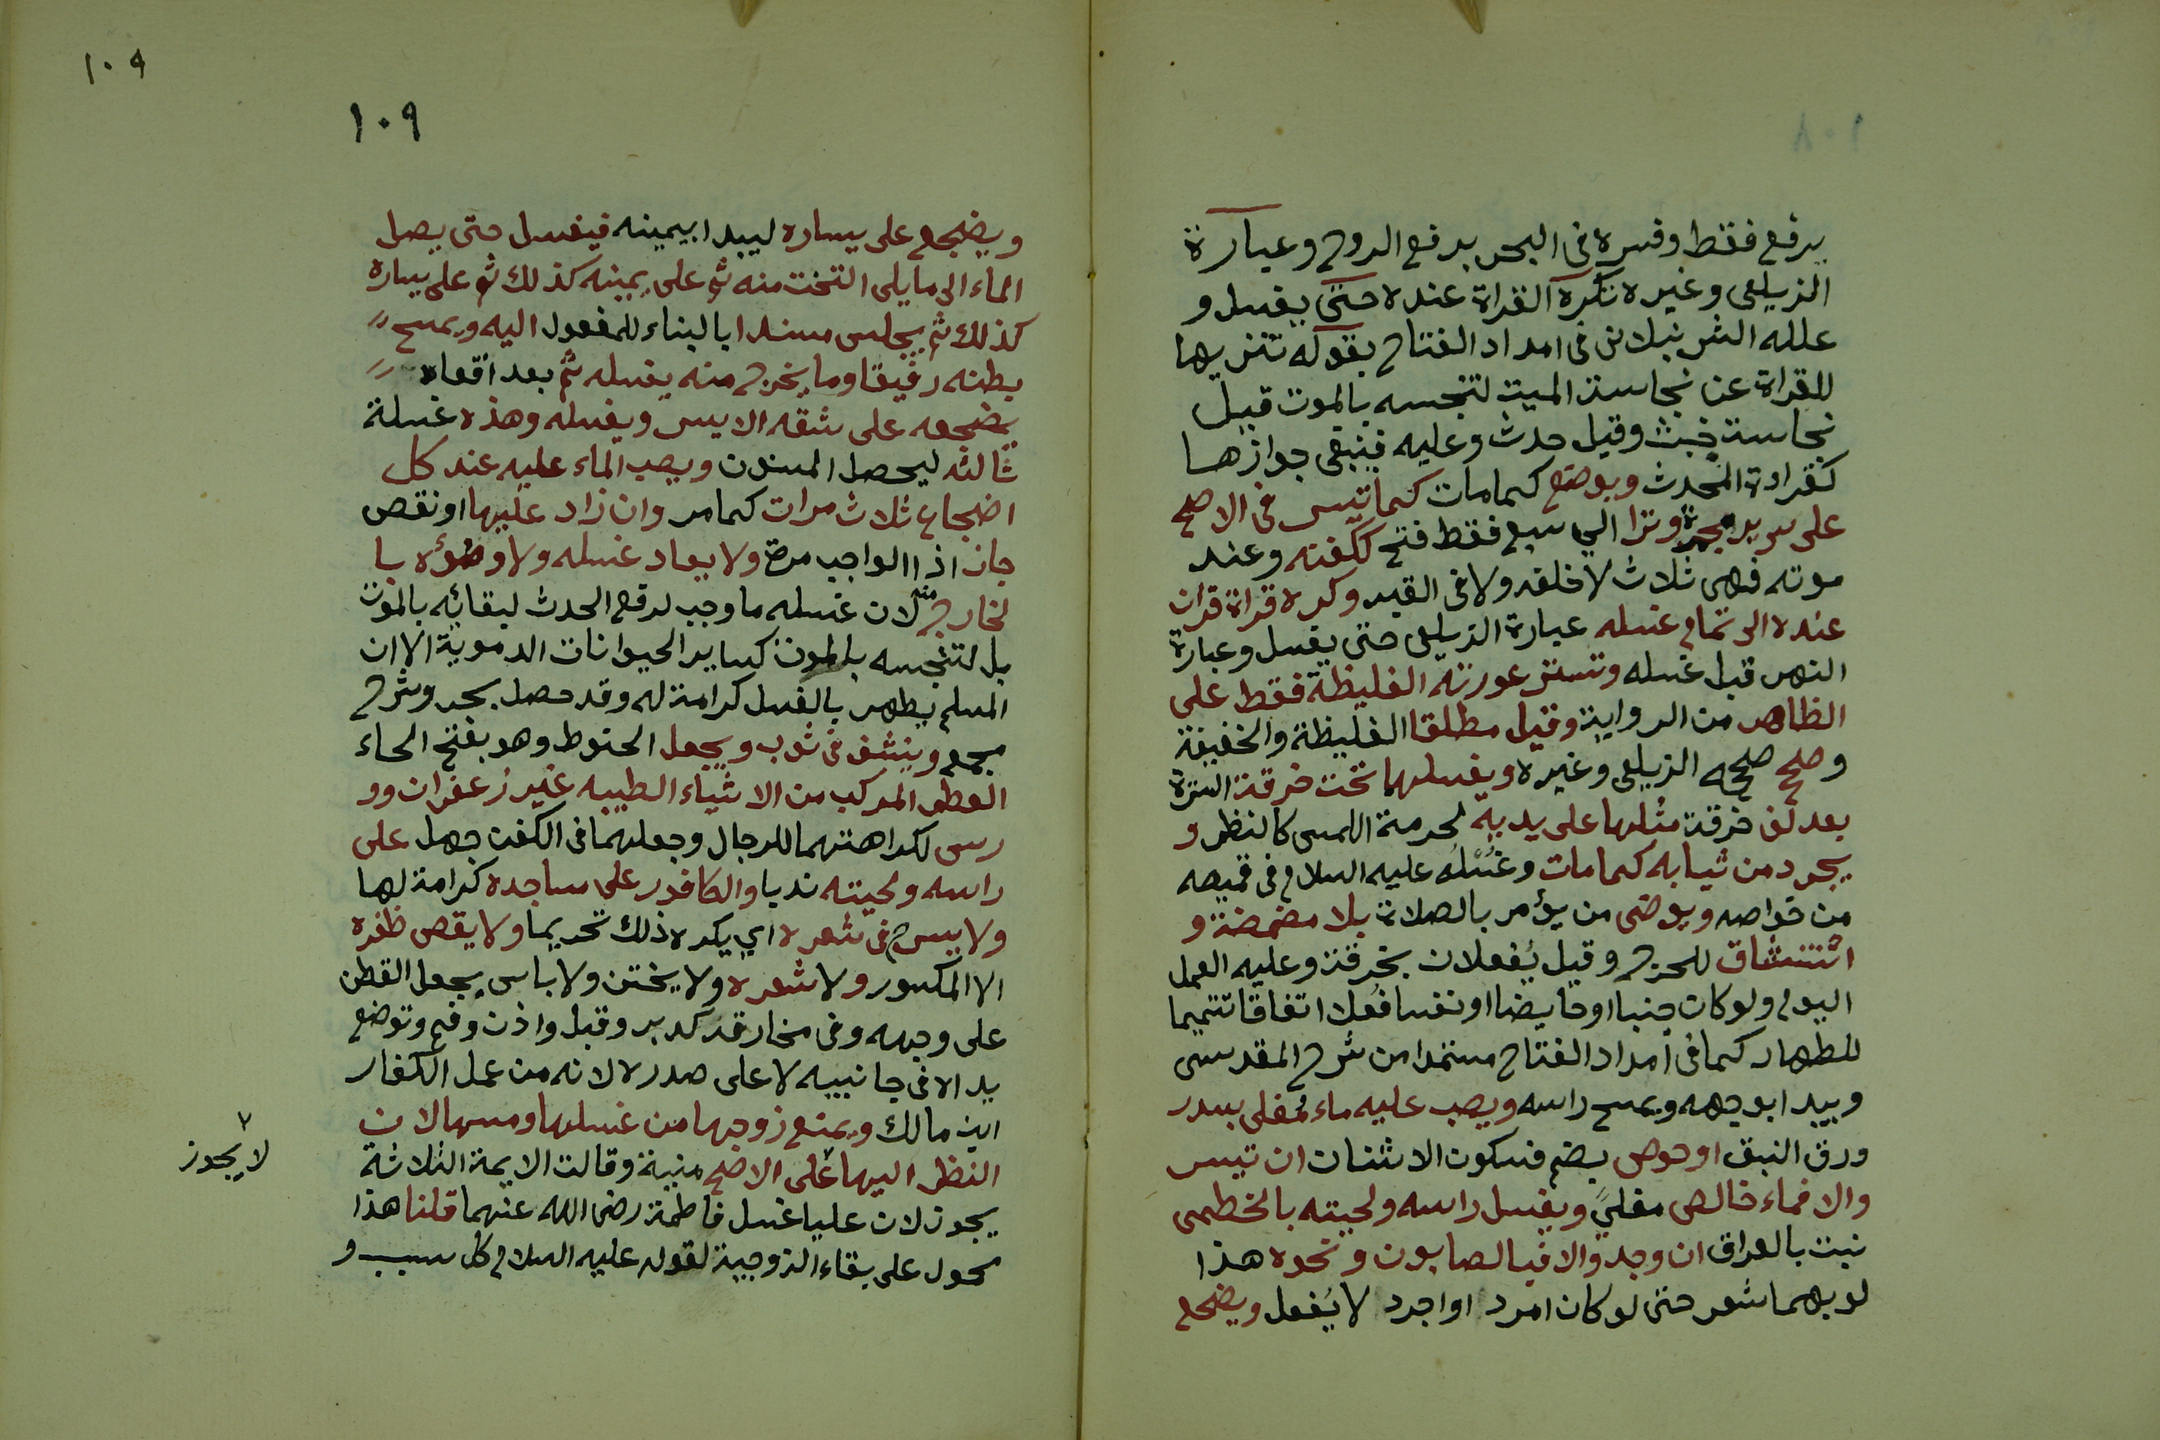 يرفع فقط وفسره فى البحر برفع الروح وعبارة
الزيلعى وغيره تكره القراة عنده حتى يغسل و
علله الشرنبلالى فى امداد الفتاح بقوله تنزيها
للقراة عن نجاسة الميت لتنجسه بالموت قيل
نجاسة خبث وقيل حدث وعليه فينبغى جوازها
كقراءة المحدث ويوضع كما مات كما تيسر فى الاصح
على سرير مجمرة وترا الي سبع فقط فتح ككفنه وعند
موته فهى ثلاث لا خلفه ولا فى القبر وكره قراة قران
عنده الى تمام غسله عبارة الزيلعى حتى يغسل وعبارة
النهر قبل غسله وتستر عورته الغليظة فقط على
الظاهر من الرواية وقيل مطلقا الغليظة والخفيفة
وصحح صححه الزيلعى وغيره ويغسلها تحت خرقة السترة
بعد لف خرقة مثلها على يديه لحرمة اللمس كالنظر و
يجرد من ثيابه كما مات وغسله عليه السلام فى قميصه
من خواصه ويوضى من يؤمر بالصلاة بلا مضمضة و
استنشاق للحرج وقيل يفعلان بخرقة وعليه العمل
اليوم ولو كان جنبا او حايضا او نفسا فعلا اتفاقا تتميما
للطهار كما فى امداد الفتاح مستمدا من شرح المقدسى
ويبدا بوجهه ويمسح راسه ويصب عليه ماء مغلى بسدر
ورق النبق او حرض بضم فسكون الاشنان ان تيسر
والا فماء خالص مغلي ويغسل راسه ولحيته بالخطمى
نبت بالعراق ان وجد والا فبالصابون ونحوه هذا
لو بهما شعر حتى لو كان امرد او اجرد لا يفعل ويضجع
١٠٩
١٠٩
ويضجع على يساره ليبدا بيمينه فيغسل حتى يصل
الماء الى ما يلى التخت منه ثم على يمينه كذلك ثم على يساره
كذلك ثم يجلس مسندا بالبناء للمفعول اليه ويمسح
بطنه رفيقا وما يخرج منه يغسله ثم بعد اقعاه
يضجعه على شقه الايسر ويغسله وهذه غسلة
ثالثه ليحصل المسنون ويصب الماء عليه عند كل
اضجاع ثلاث مرات كما مر وان زاد عليها او نقص
جاز اذ الواجب مرة ولا يعاد غسله ولا وضؤه با
لخارج منه لان غسله ما وجب لرفع الحدث لبقائه بالموت
بل لتنجسه بالموت كساير الحيوانات الدموية الا ان
المسلم يطهر بالغسل كرامة له وقد حصل بحر وشرح
مجمع وينشف فى ثوب ويجعل الحنوط وهو بفتح الحاء
العطر المركب من الاشياء الطيبه غير زعفران وو
رس لكراهتهما للرجال وجعلهما فى الكفن جهل على
راسه ولحيته ندبا والكافور على مساجده كرامة لها
ولا يسرح فى شعره اي يكره ذلك تحريما ولا يقص ظفره
الا المكسور ولا شعره ولا يختن ولا باس بجعل القطن
على وجهه وفى مخارقه كدبر وقبل واذن وفم وتوضع
يداه فى جانبيه لا على صدره لانه من عمل الكفار
ابن مالك ويمنع زوجها من غسلها ومسها لا من
النظر اليها على الاصح منية وقالت الايمة الثلاثة
يجوز لان عليا غسل فاطمة رضى الله عنهما قلنا هذا
محول على بقاء الزوجية لقوله عليه السلام كل سبب و
٧
لا يجوز